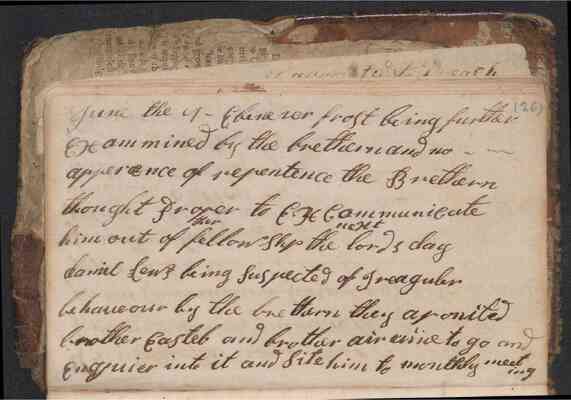 to preach
June the 4 - Ebenezer frost being further
126
Exammined by the brethern and no -
apperence of repentence the Brethern
thought Proper to Excommunicate
him out of ther fellowShp the lords day next
daniel Lews being Suspected of Ireaguler
behaueour by the brethern they aponited
brother Casteb and brother to go and
Enquier into it and Site him to monthly meeting